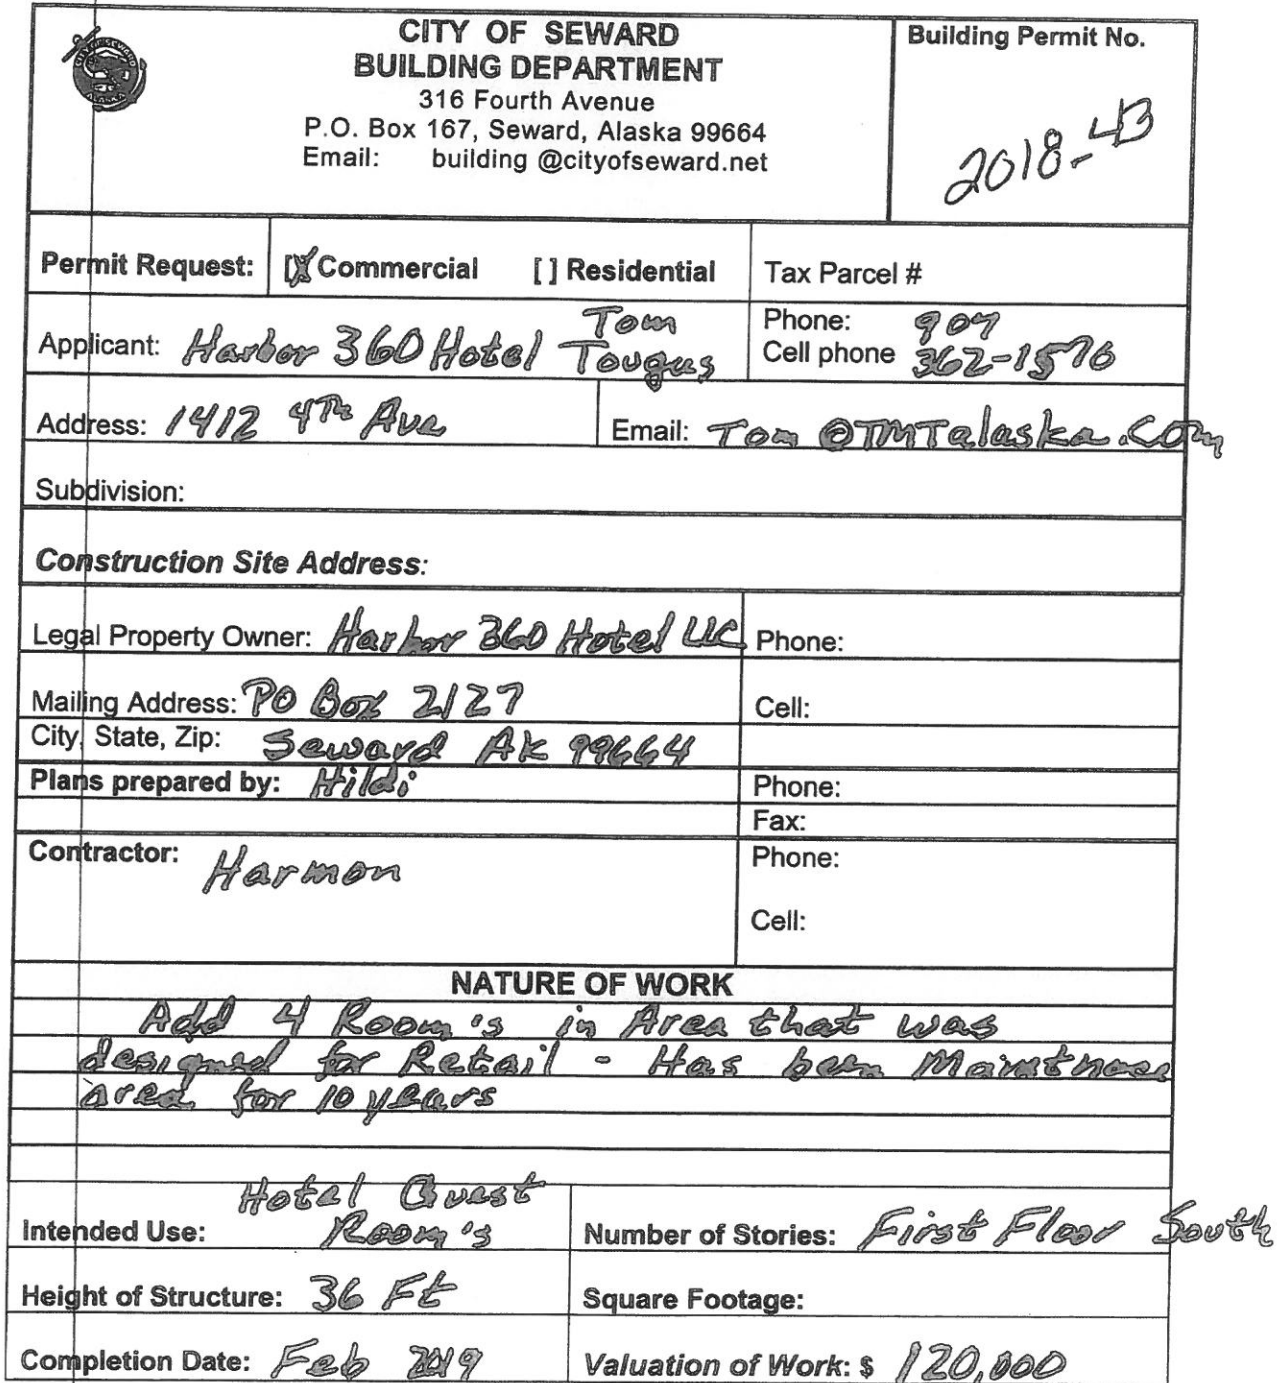 CITY OF SEWARD
BUILDING DEPARTMENT
316 Fourth Avenue
P.O. Box 167, Seward, Alaska 99664
Email: building @cityofseward.net
Building Permit No.
2018-43
Permit Request: [X] Commercial [ ] Residential Tax Parcel #
Applicant: Harbor 360 Hotel Tom Tougas
Phone: 907
Cell phone 362-1576
Address: 1412 4th Ave Email: Tom @TMTalaska.com
Subdivision:
Construction Site Address:
Legal Property Owner: Harbor 360 Hotel LLC Phone:
Mailing Address: PO Box 2127 Cell:
City, State, Zip: Seward AK 99664
Plans prepared by: Hildi Phone:
Fax:
Contractor: Harmon Phone:
Cell:
NATURE OF WORK
Add 4 Room's in Area that was
designed for Retail - Has been
area for 10 years
Intended Use: Hotel Guest Room's Number of Stories: First Floor South
Height of Structure: 36 Ft Square Footage:
Completion Date: Feb 2019 Valuation of Work: $ 120,000